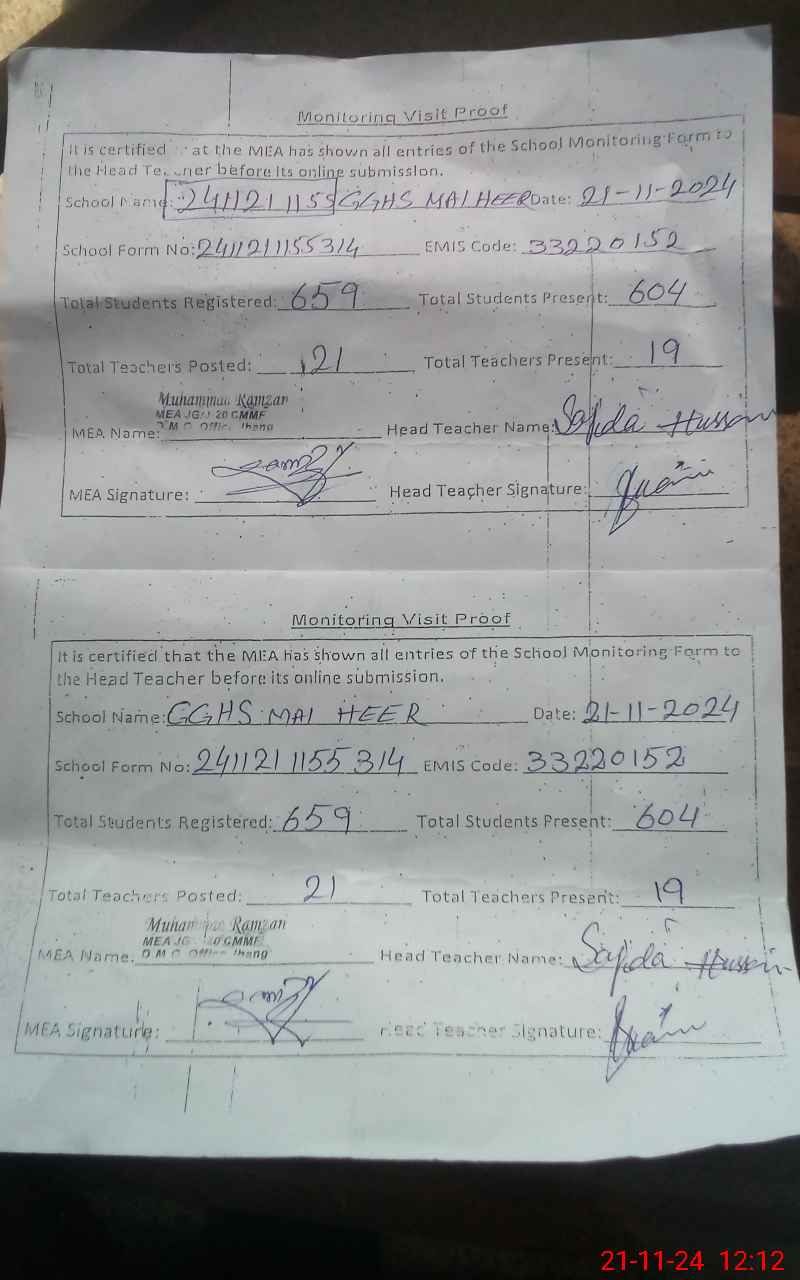 Monitoring Visit Proof
It is certified at the MEA has shown all entries of the School Monitoring Form to
the Head Teacher before its online submission.
School Name: 2411211155 GGHS MAI HEER Date: 21-11-2024
School Form No: 2411211155314 EMIS Code: 33220152
Total Students Registered: 659 Total Students Present: 604
Total Teachers Posted: 21 Total Teachers Present: 19
Muhammad Ramzan
MEA 20 CMMF
D M O Office Jhang
MEA Name: Head Teacher Name: Sajida Hussain
MEA Signature: Head Teacher Signature:
Monitoring Visit Proof
It is certified that the MEA has shown all entries of the School Monitoring Form to
the Head Teacher before its online submission.
School Name: GGHS MAI HEER Date: 21-11-2024
School Form No: 2411211155314 EMIS Code: 33220152
Total Students Registered: 659 Total Students Present: 604
Total Teachers Posted: 21 Total Teachers Present: 19
Muhammad Ramzan
MEA 20 CMMF
D M O Office Jhang
MEA Name: Head Teacher Name: Sajida Hussain
MEA Signature: Head Teacher Signature:
21-11-24 12:12